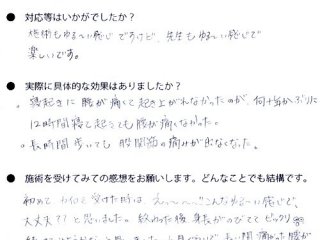 ● 対応等はいかがでしたか？
施術もゆる〜い感じですけど、先生もゆる〜い感じで
楽しいです。
● 実際に具体的な効果はありましたか？
。寝起きに腰が痛くて起き上がれなかったのが、何十年かぶりに
12時間寝て起きても腰が痛くなかった。
。長時間歩いても股関節の痛みが出なくなった。
● 施術を受けてみての感想をお願いします。どんなことでも結構です。
初めて 受けた時は、え〜〜〜!!"こんなゆる〜い感じで、
大丈夫??と思いました。終わった後 身長がのびてて ビックリ